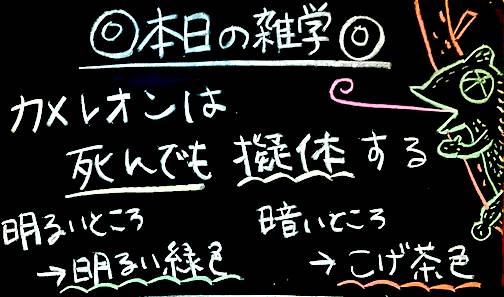 ◎本日の雑学◎
カメレオンは
死んでも擬体する
明るいところ
→明るい緑色
暗いところ
→こげ茶色